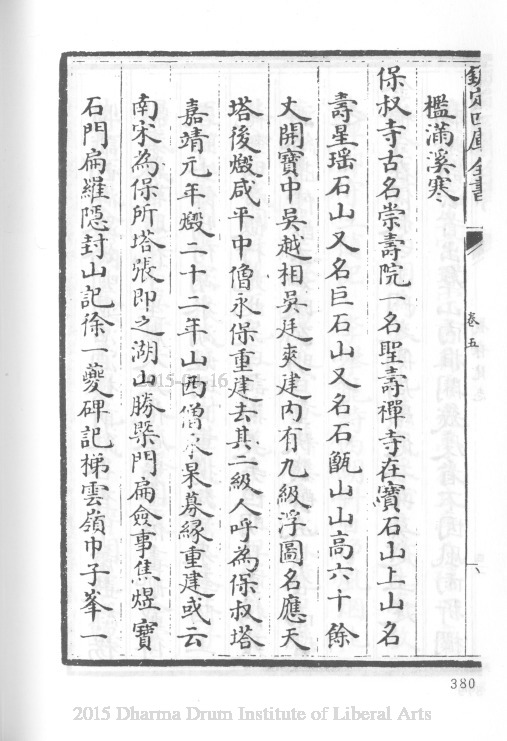 欽定四庫全書
卷五
檻滿溪寒
保叔寺古名崇壽院一名聖壽禪寺在寶石山上山名
壽星瑶石山又名巨石山又名石甑山山高六十餘
丈開寶中吳越相吳廷爽建内有九級浮圖名應天
塔後燬咸平中僧永保重建去其二級人呼為保叔塔
嘉靖元年燬二十二年山西僧永果募緣重建或云
南宋為保所塔張即之湖山勝槩門扁僉事焦煜寶
石門扁羅隱封山記徐一夔碑記梯雲嶺巾子峯一
380
2015 Dharma Drum Institute of Liberal Arts